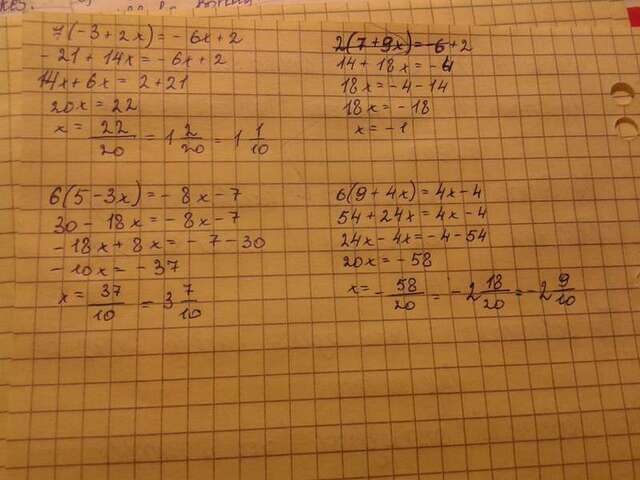 7(-3+2x)=-6x+2
-21+14x=-6x+2
14x+6x=2+21
20x=22
x=22/20=1 2/20=1 1/10
2(7+9x)=-6+2
14+18x=-4
18x=-4-14
18x=-18
x=-1
6(5-3x)=-8x-7
30-18x=-8x-7
-18x+8x=-7-30
-10x=-37
x=37/10=3 7/10
6(9+4x)=4x-4
54+24x=4x-4
24x-4x=-4-54
20x=-58
x=-58/20=-2 18/20=-2 9/10